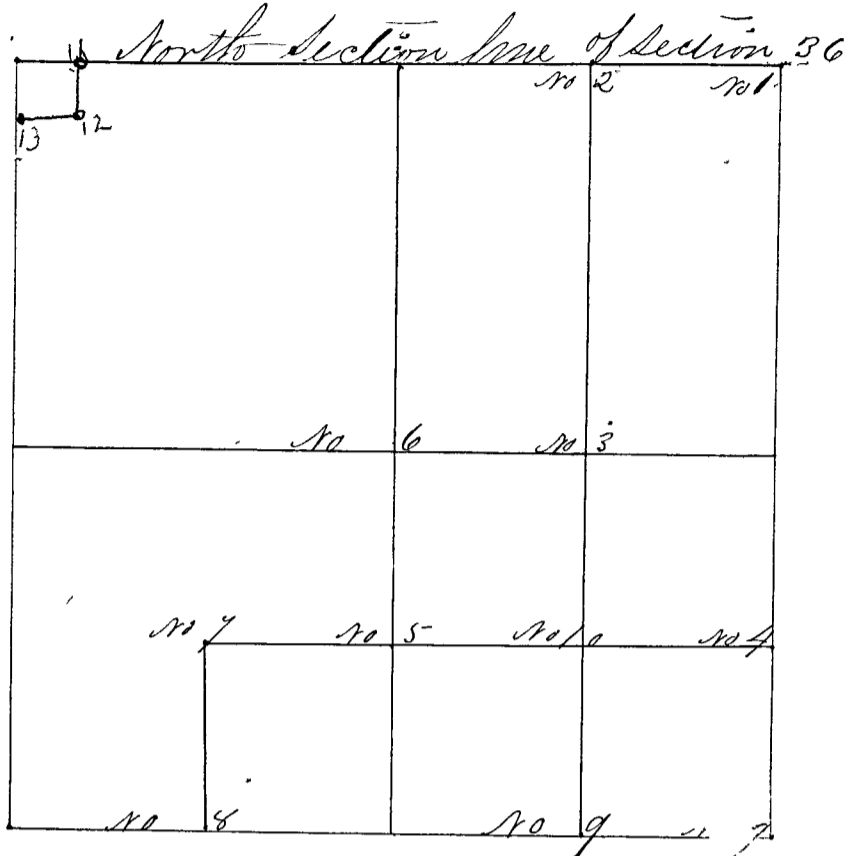 North Section line of Section 36
11 No 2 No 1
13 12
No 6 No 3
No 7 No 5 No 10 No 4
No 8 No 9